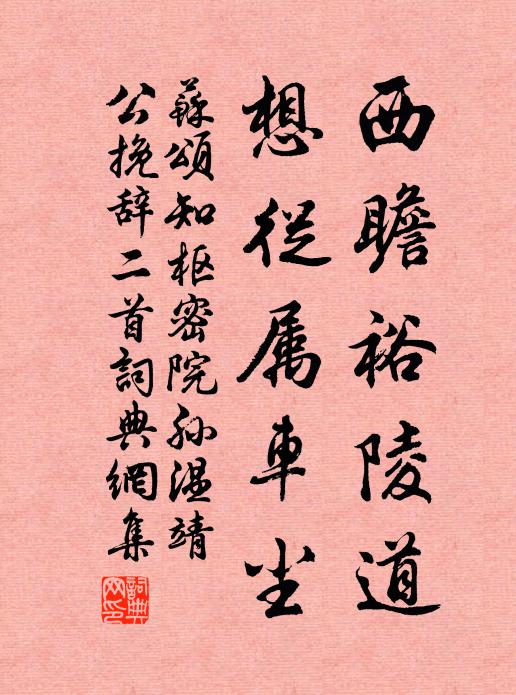 西瞻裕陵道
想從属車尘
蘇頌知枢密院孙温靖
公挽辞二首詞典網集